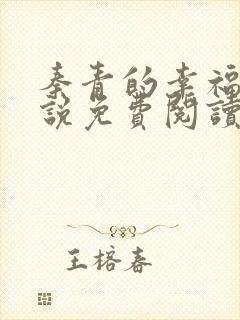 秦青的幸福
說免費閱讀
王榕春